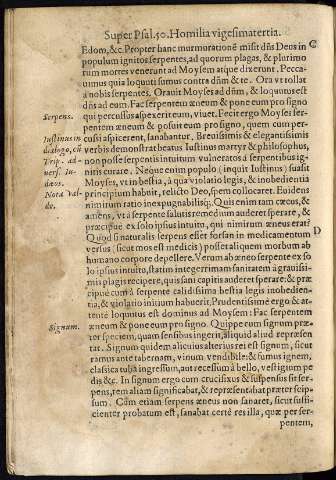 Super Psal.50. Homilia vigesimatertia.
Edom, &c. Propter hanc murmurationẽ misit dñs Deus in
populum ignitos serpentes, ad quorum plagas, & plurimo
rum mortes venerunt ad Moysem atque dixerunt. Pecca-
uimus quia locuti sumus contra dñm & te. Ora vt tollat
a nobis serpentes. Orauit Moyses ad dñm, & loquutus est
dñs ad eum. Fac serpentem æneum & pone eum pro signo
qui percussus aspexerit eum, viuet. Fecit ergo Moyses ser-
pentem æneum & posuit eum pro signo, quem cum per-
cussi aspicerent, sanabantur. Breuissimis & elegantissimis
verbis demonstrat beatus Iustinus martyr & philosophus,
non posse serpentis intuitum vulneratos a serpentibus ig-
nitis curare. Neque enim populo (inquit Iustinus) suasit
Moyses, vt in bestia, à qua violatio legis, & inobedientia
principium habuit, relicto Deo, spem collocaret. Euidens
nimirum ratio inexpugnabilisq́;. Quis enim tam cæcus, &
amens, vt a serpente salutis remedium auderet sperare, &
præcipue ex solo ipsius intuitu, qui nimirum æneus erat?
Quod si naturalis serpens esset forsan in medicamentum
versus (sicut mos est medicis) posset aliquem morbum ab
humano corpore depellere. Verum ab æneo serpente ex so
lo ipsius intuitu, statim integerrimam sanitatem à grauissi-
mis plagis recipere, quis sani capitis auderet sperare: & præ
cipue cum à serpente calidissima bestia legis inobedien-
tia, & violatio initium habuerit. Prudentissime ergo & at-
tente loquutus est dominus ad Moysem: Fac serpentem
æneum & pone eum pro signo. Quippe cum signum præ-
ter speciem, quam sensibus ingerit, aliquid aliud repræsen
tat. Signum quidem alicuius alterius rei est signum, sicut
ramus ante tabernam, vinum vendibile: & fumus ignem,
classica tubą ingressum, aut recessum à bello, vestigium pe
dis &c. In signum ergo cum crucifixus & suspensus sit ser-
pens, rem aliam significabat, & repræsentabat præter seip-
sum. Cùm etiam serpens æneus non sanaret, sicut suffi-
cienter probatum est, sanabat certè res illa, quæ per ser-
pentem,
C
D
Serpens.
Iustinus in
dialogo, cũ
Trip. ad-
uers. Iu-
dæos.
Nota val-
de.
Signum.